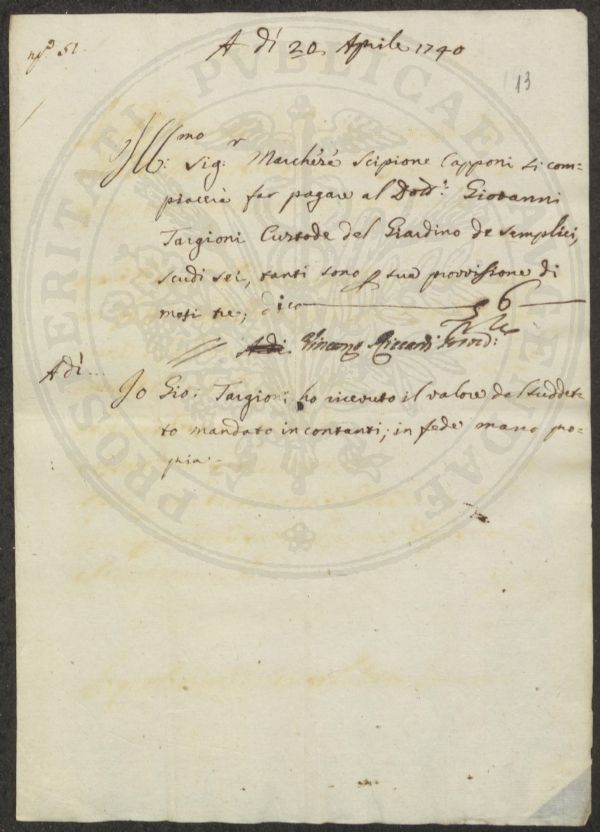 A dì 20 Aprile 1740
n.o 51.
13
Ill:mo Sig:r Marchese Scipione Capponi si com=
piacerà far pagare al Dott.r Giovanni
Targioni Custode del Giardino de semplici,
scudi sei, tanti sono p sua provvisione di
mesi tre; dico 6
Adi Vincenzo Riccardi Provv:
Adì...
Io Gio: Targioni ho ricevuto il valore del suddet=
to mandato in contanti; in fede mano pro=
pria.
PROSPERITATI PVBLICAE